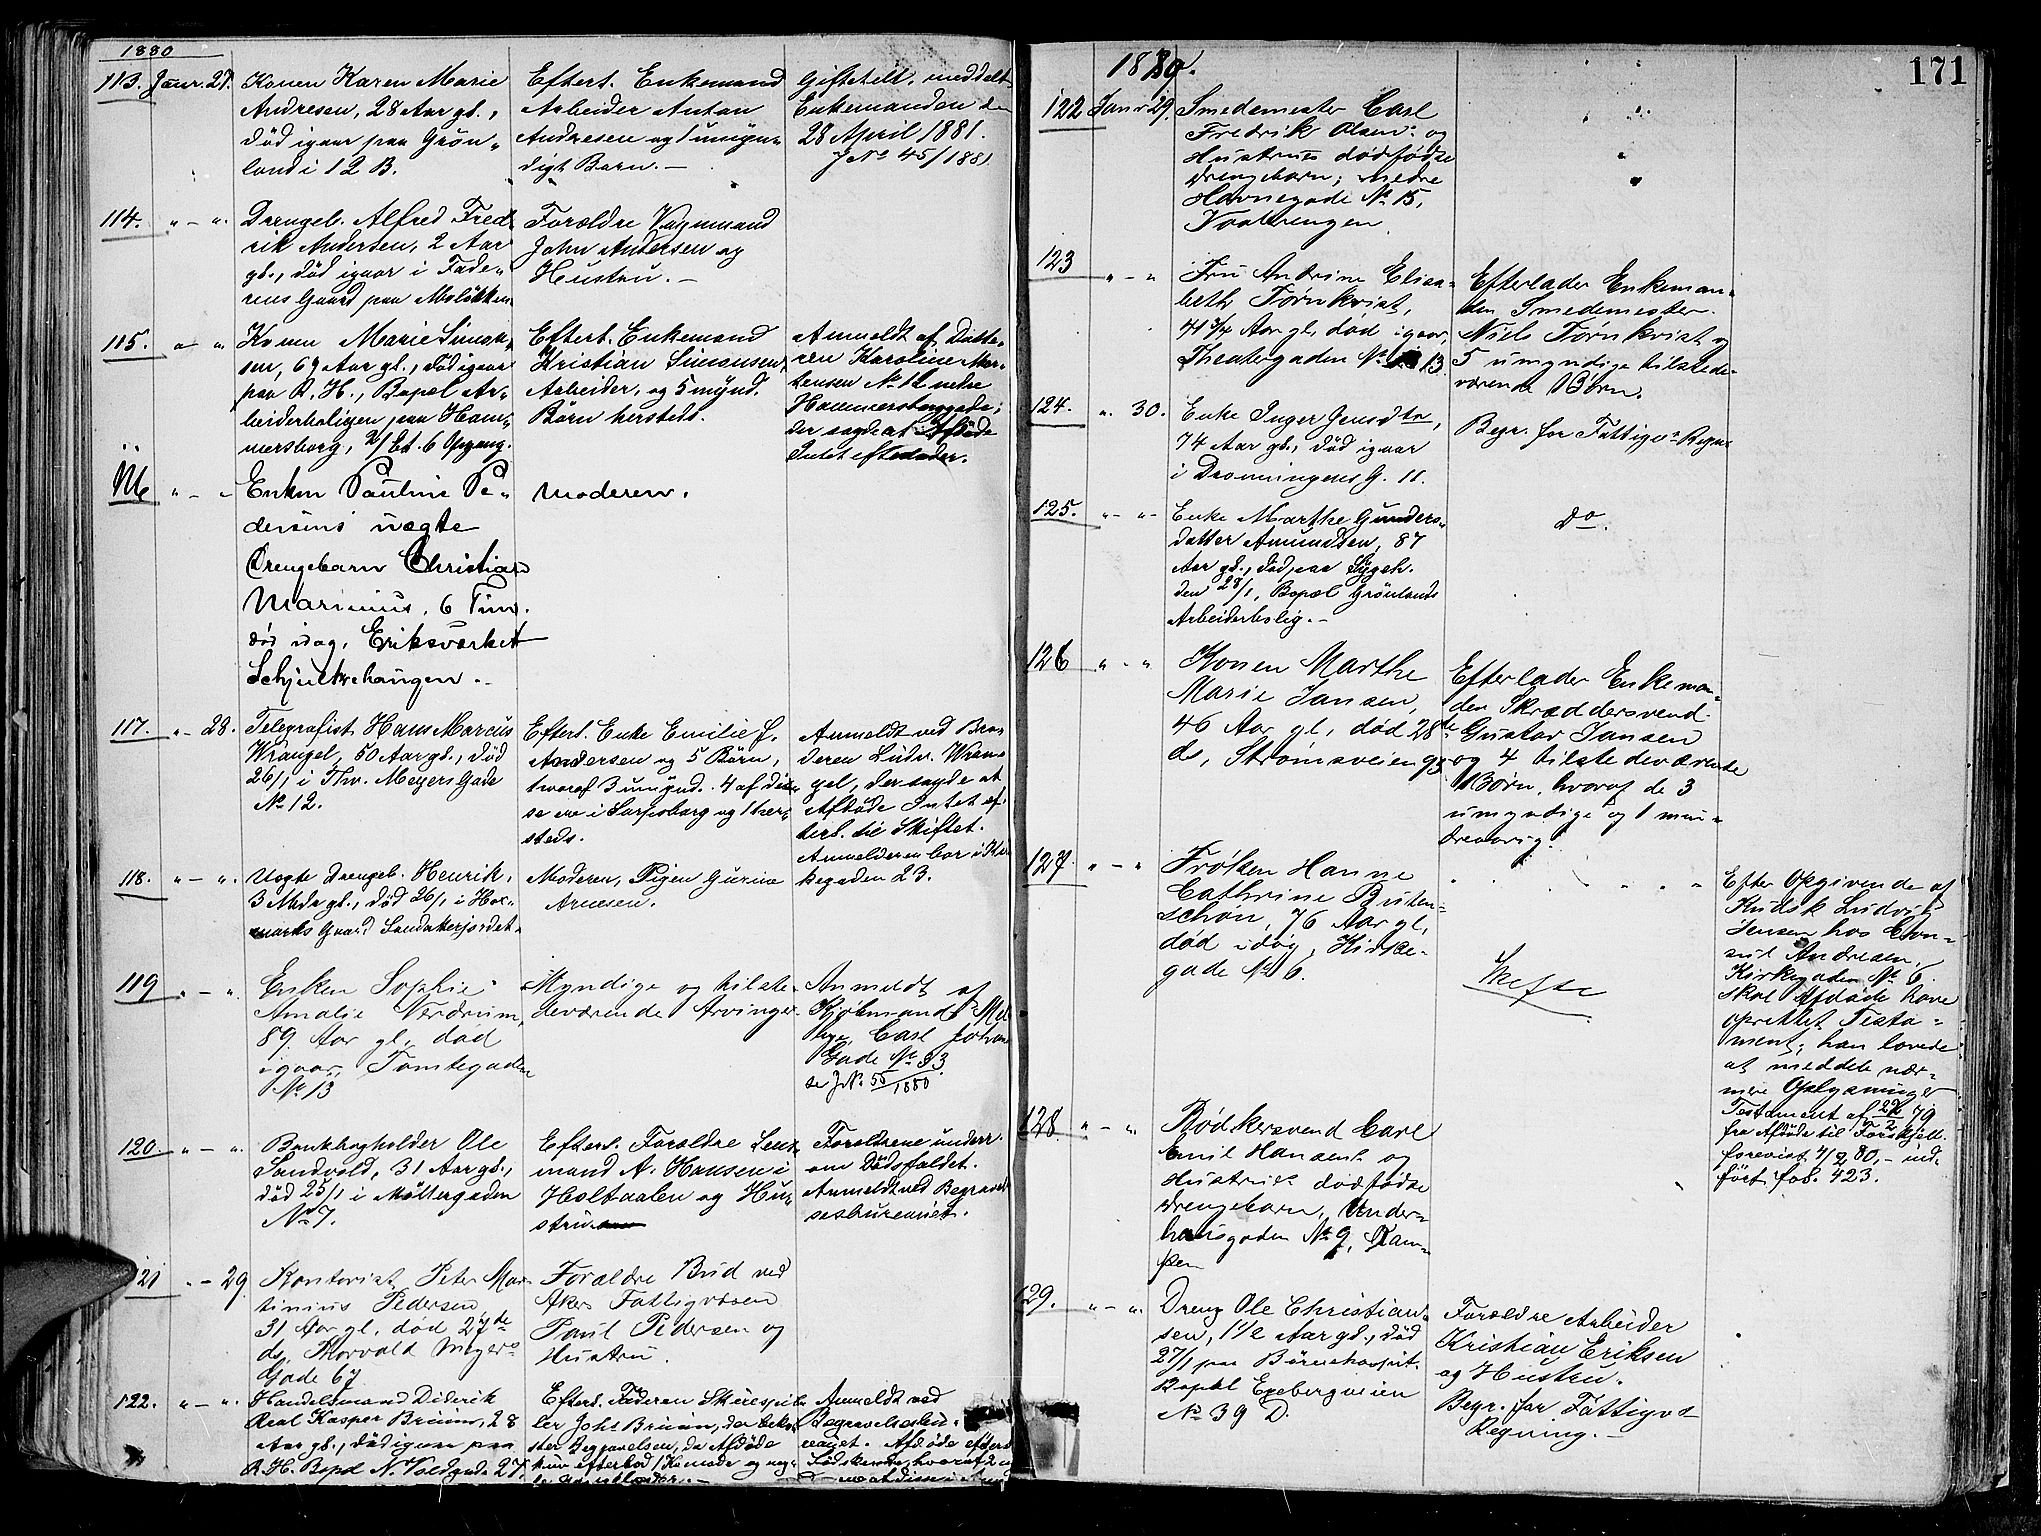 1880
113. Janr. 27. Konen Karen Marie
Andresen, 28 Aar gl.,
død igaar paa Grøn-
land i 12 B.
Efterl. Enkemand
Arbeider Anton
Andresen og 1 umyn-
digt Barn. -
Giftetilt. meddelt
Enkemanden den
28 April 1881.
J No 45/1881
114. " - " Drengeb. Alfred Fred-
rik Andersen, 2 Aar
gl., død igaar i Fade-
rens Gaard paa
Forældre Vognmand
John Andersen og
Hustru. -
115. " - " Konen Marie Simon-
sen, 67 Aar gl., død igaar
paa R. H., Bopæl Ar-
beiderboligen paa Ham-
mersborg, 2/Et. 6 Opgang.
Efterl. Enkemand
Kristian Simonsen,
Arbeider, og 5 mynd.
Børn hersteds.
Anmeldt af Datte-
ren Karoline Mor-
tensen No 12 nedre
Hammersborggade;
der sagde at Afdøde
Intet efterlader.
116 " - " Enken Pauline Pe-
dersens uægte
Drengebarn Christian
Marinius, 6 Tim.
død idag, Eriksværket
Moderen.
117. " - 28. Telegrafist Hans Marcus
Wrangel, 50 Aar gl., død
26/1 i Thv. Meyers Gade
No 12.
Efterl. Enke Emilie f.
Andersen og 5 Børn,
hvoraf 3 umynd. 4 af dis-
se ere i Sarpsborg og 1 her-
steds.
Anmeldt ved Bro-
deren Ludv. Wran-
gel, der sagde at
Afdøde Intet ef-
terl. til Skiftet.
Anmelderen bor i Kir-
kegaden 23.
118. " - " Uægte Drengeb. Henrik,
3 Mdr gl., død 26/1 i
Gaard Sandakerjordet.
Moderen, Pigen Gurine
Arnesen.
119 " - " Enken Sophie
Amalie Verdrum,
89 Aar gl., død
igaar, Tomtegaden
No 13
Myndige og tilste-
deværende Arvinger
Anmeldt af
Kjøbmand Mel-
bye, Carl Johans
Gade No 33.
se J No 55/1880
120. " - " Bankbogholder Ole
Sandvold, 31 Aar gl.,
død 25/1 i Møllergaden
No 7.
Efterl. Forældre Lens-
mand A. Hansen i
Holtaalen og Hu-
stru.
Forældrene underr.
om Dødsfaldet.
Anmeldt ved Begravel-
sesbureauet.
121 " - 29. Kontorist Peter Mar-
tinius Pedersen,
31 Aar gl., død 27de
ds, Thorvald Meyers
Gade 67
Forældre Bud ved
Akers Fattigvæsen
Paul Pedersen og
Hustru.
122. " - " Handelsmand Diderik
Real Kasper Bruun, 28
Aar gl., død igaar paa
R. H. Bopæl N. Voldgade 27
Efterl. Faderen Skuespil-
ler Johs Bruun, der bekos-
ter Begravelsen, da Afdøde
kun efterlod 1 Komode og
Anmeldt ved
Begravelsesbu-
reauet. Afdøde efterl.
Sødskende, hvoraf 2
171
1880.
122 Janr 29. Smedemester Carl
Fredrik Olsens og
Hustrues dødfødte
Drengebarn; nedre
Havnegade No 15,
Vaalerengen.
123 " - " Fru Andrine Elisa-
beth Tørnkvist,
41 3/4 Aar gl, død igaar,
Theatergaden No 13.
Efterlader Enkeman-
den Smedemester
Niels Tørnkvist og
5 umyndige tilstede-
værende Børn.
124. " 30. Enke Inger Jensdtr,
74 Aar gl., død igaar
i Dronningens G. 11.
Begr. for Fattigv. Regn.
125. " - " Enke Marthe Gunders-
datter Amundsen, 87
Aar gl., død paa Sygeh.
den 28/1, Bopæl Grønlands
Arbeiderbolig. -
do.
126 " - " Konen Marthe
Marie Jansen,
46 Aar gl, død 28de
ds, Strømsveien 93
Efterlader Enkeman-
den Skræddersvend
Gustav Jansen
og 4 tilstedeværende
Børn, hvoraf de 3
umyndige og 1 min-
dreaarig.
127. " - " Frøken Hanne
Cathrine Buten-
schøn, 76 Aar gl,
død idag, Kirke-
gade No 6.
Skifte
Efter Opgivende af
Kudsk Ludvig
Jensen hos Con-
sul Andresen,
Kirkegaden No 6.
skal Afdøde have
oprettet Testa-
ment; han lovede
at meddele nær-
mere Oplysninger
Testament af 79
fra Afdøde til
forevist 7/2 80, - ind-
ført fol. 423.
128. " - " Bødkersvend Carl
Emil Hansens og
Hustrus dødfødte
Drengebarn, Under-
hausgaden No 9, Kam-
pen
129. " - " Dreng Ole Christian-
sen, 1 1/2 Aar gl., død
27/1 paa Børnehospit.
Bopæl Egebergveien
No 39 D.
Forældre Arbeider
Kristian Eriksen
og Hustru.
Begr. for Fattigvs
Regning. -